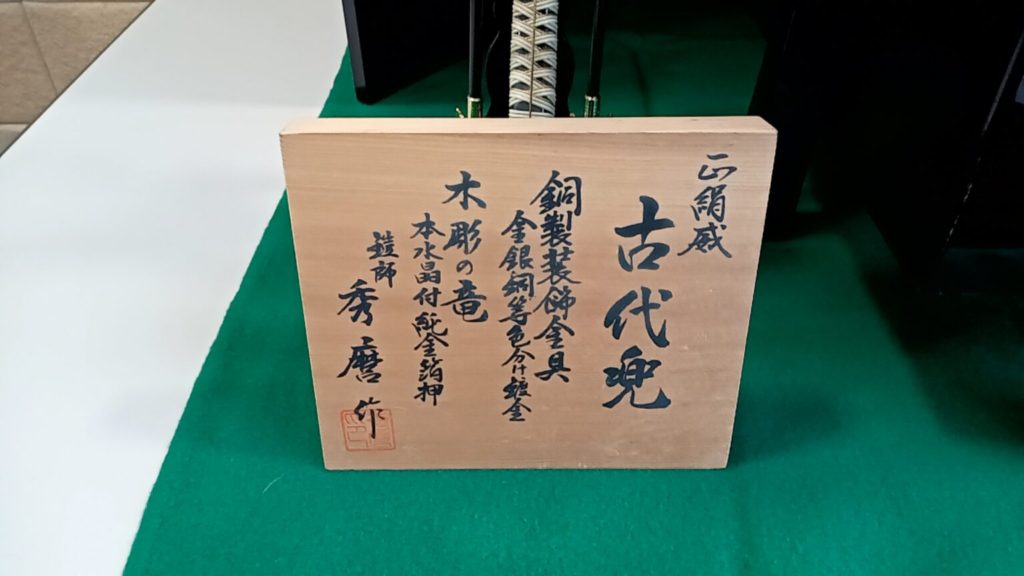 正絹威
古代兜
銅製装飾金具
金銀銅等色分け鍍金
木彫の竜
本水晶付純金箔押
鎧師
秀麿作